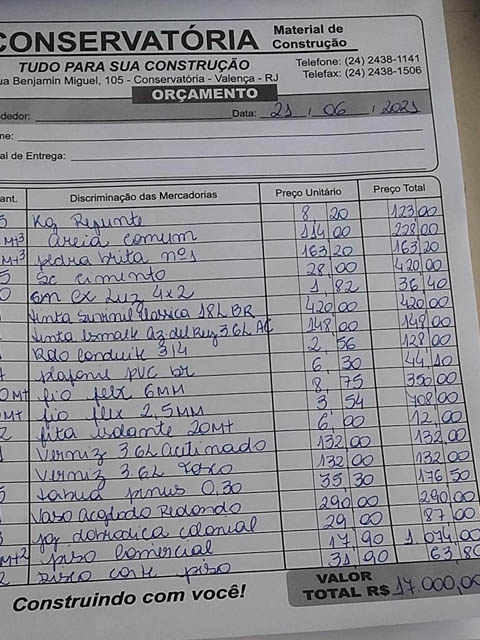 CONSERVATÓRIA Material de Construção
TUDO PARA SUA CONSTRUÇÃO Telefone: (24) 2438-1141
ua Benjamin Miguel, 105 - Conservatória - Valença - RJ Telefax: (24) 2438-1506
ORÇAMENTO
dedor: Data: 21 / 06 / 2021
ne:
al de Entrega:
ant. Discriminação das Mercadorias Preço Unitário Preço Total
5 Kg Rejunte 8,20 123,00
MT³ areia comum 114,00 228,00
MT³ pedra brita nº1 163,20 163,20
5 Sc cimento 28,00 420,00
0 cx Luz 4x2 1,82 36,40
tinta 18L BR 420,00 420,00
tinta Esmalte Az del Rey 3.6L AC 148,00 148,00
Rolo conduite 3/4 2,56 128,00
7 plafonie pvc br 6,30 44,10
MT fio flex 6MM 8,75 350,00
0MT fio flex 2,5MM 3,54 708,00
2 fita isolante 20MT 6,00 12,00
Verniz 3.6L Acetinado 132,00 132,00
Verniz 3.6L 132,00 132,00
5 tabua pinus 0,30 35,30 176,50
Vaso Acoplado Redondo 290,00 290,00
3 jog dobradica colonial 29,00 87,00
MT² piso comercial 17,90 1.074,00
2 Risco corte piso 31,90 63,80
Construindo com você! VALOR TOTAL R$ 17.000,00